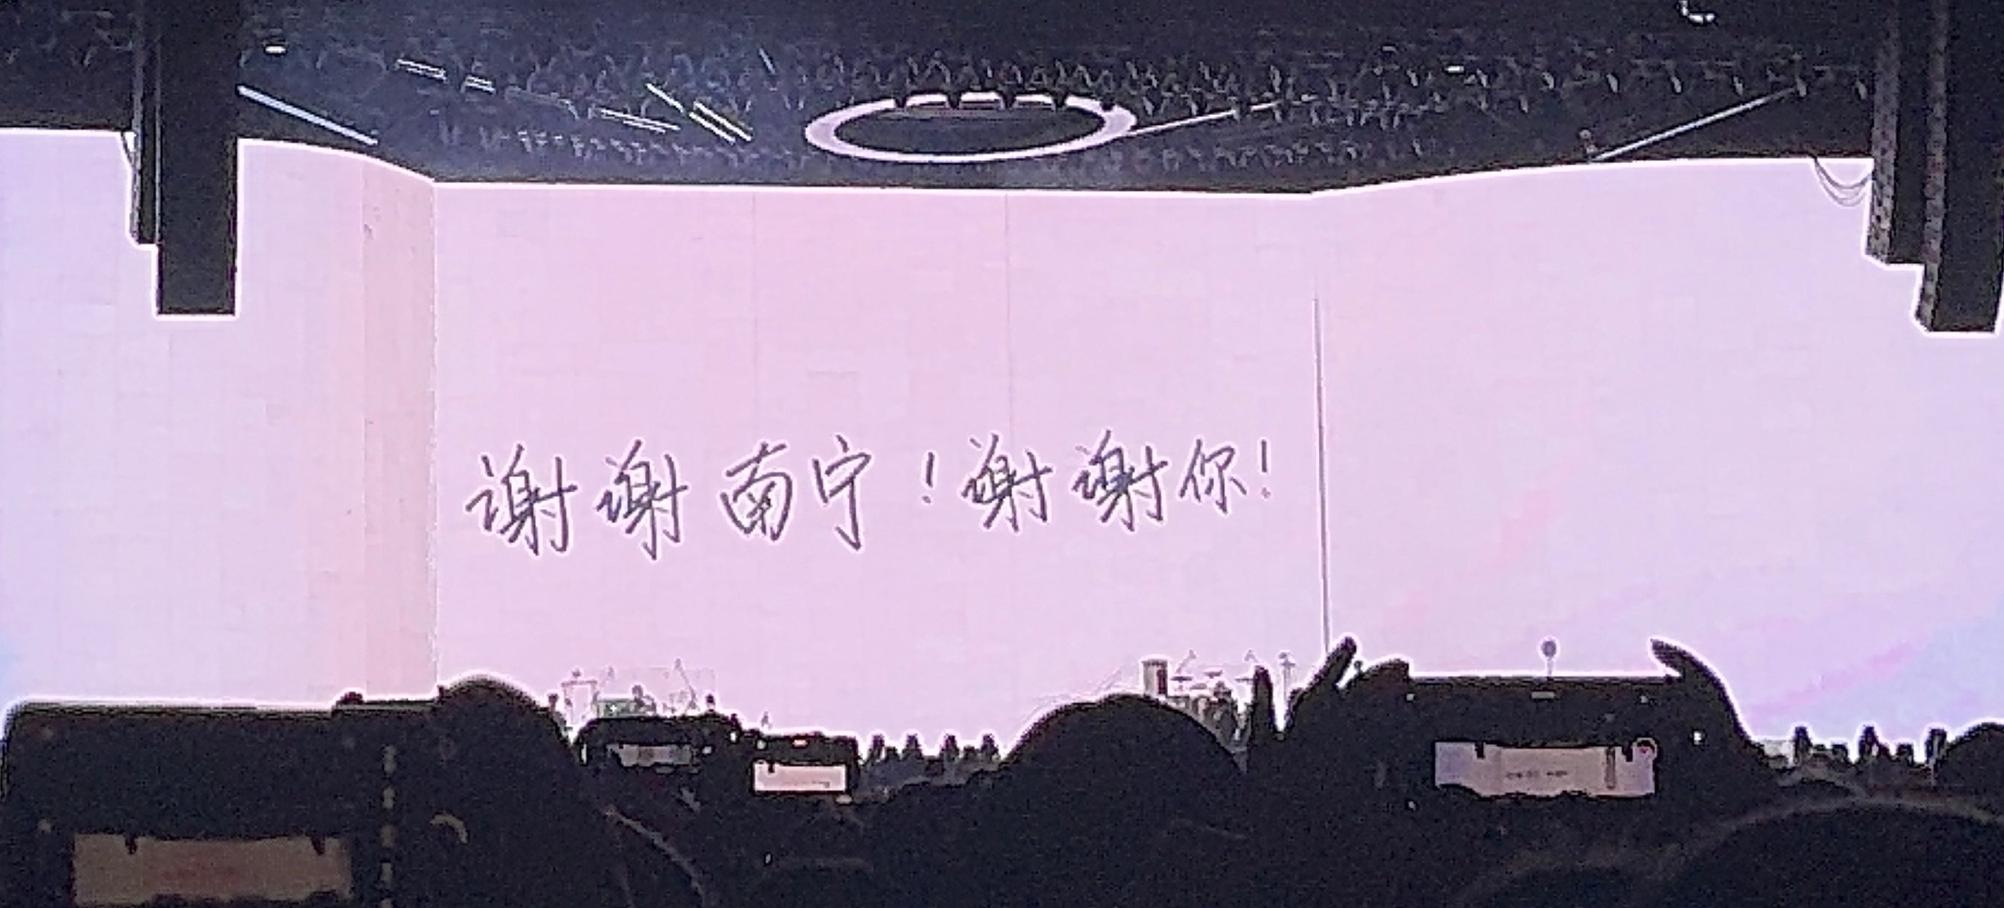 谢谢南宁！谢谢你！